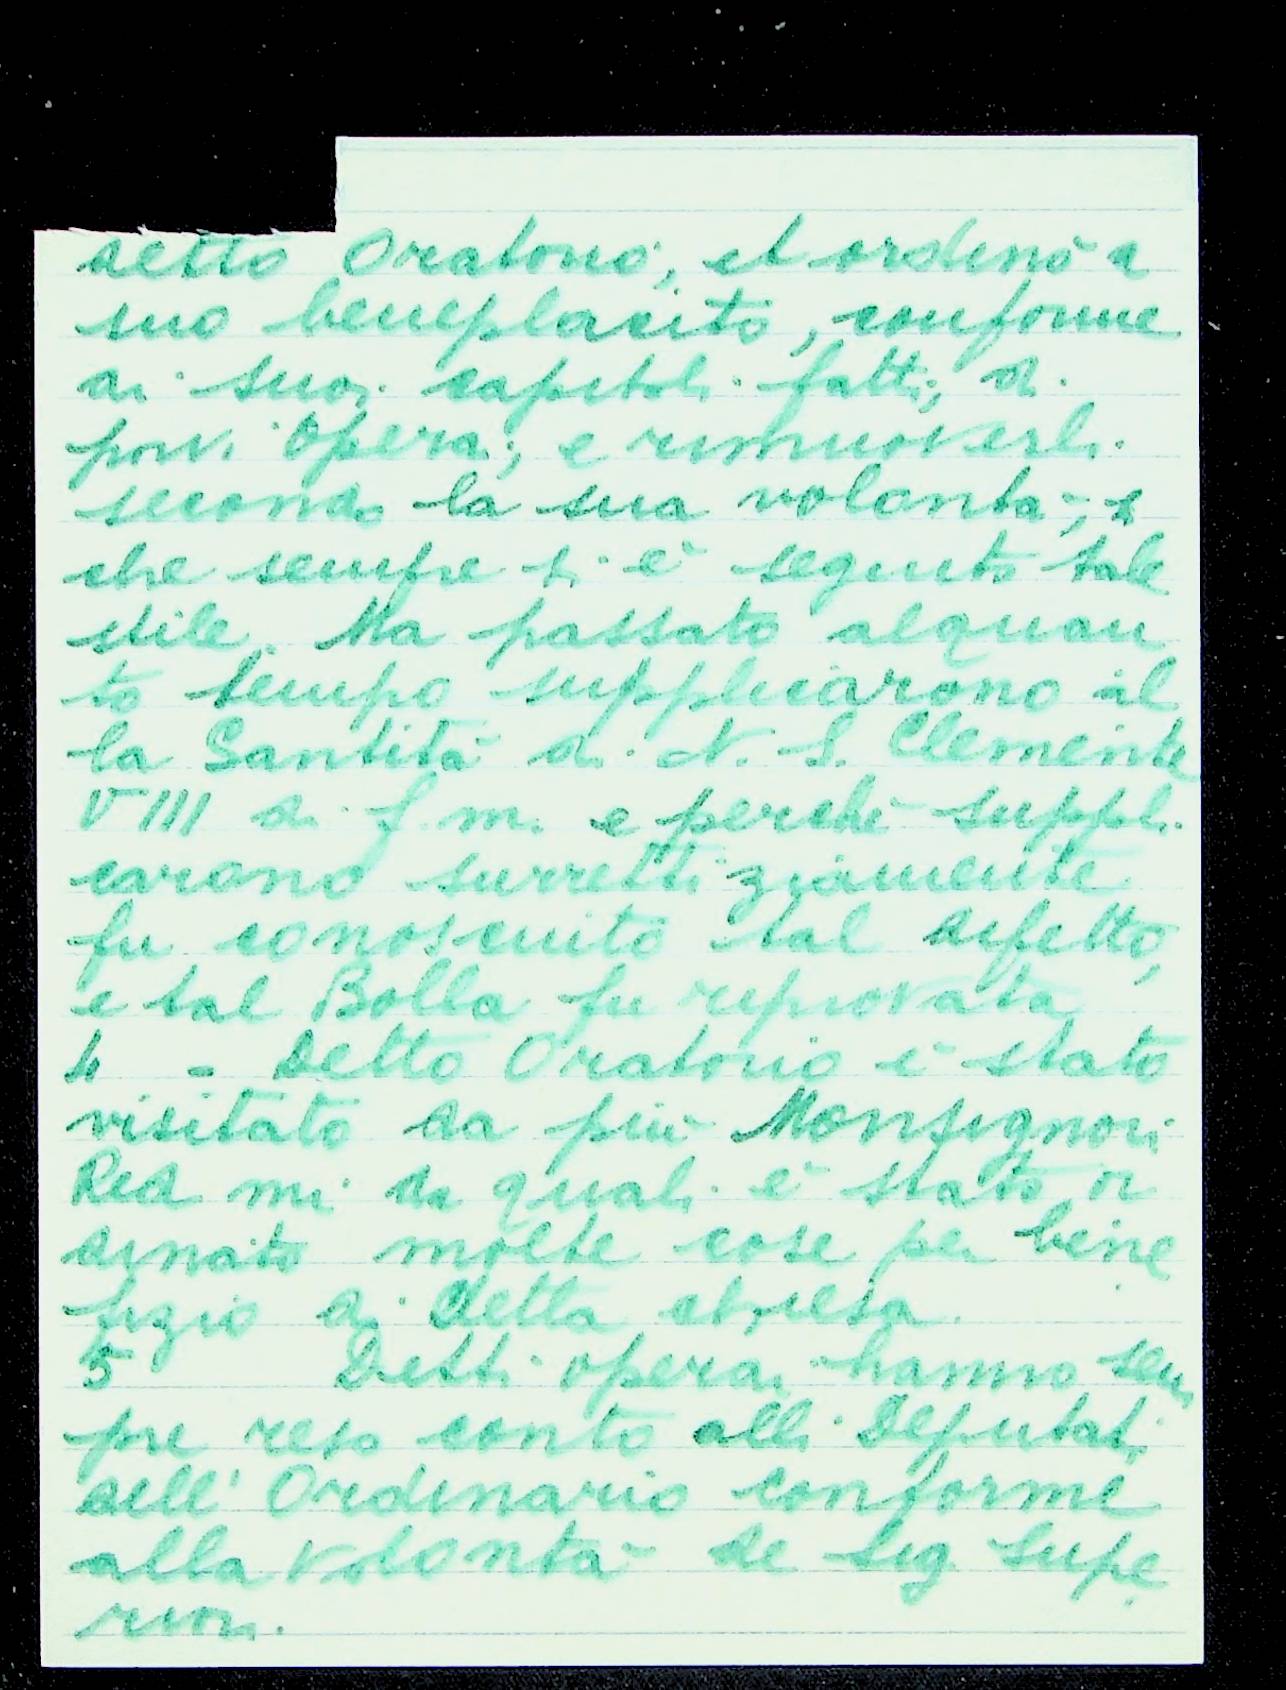 detto Oratorio, et ordinò a
suo beneplacito, conforme
ai suoi capitoli fatti, di
porvi Operai, e rimuoverli
secondo la sua volontà, e
che sempre si è seguito tale
stile. Ma passato alquan
to tempo supplicarono al
la Santità di N. S. Clemente
VIII di f. m. e perché suppli
carono surrettiziamente
fu conosciuto tal difetto,
e tal Bolla fu riprovata
4 - Detto Oratorio è stato
visitato da più Monsignori
Red mi da quali è stato or
dinato molte cose per bene
fizio di detta chiesa.
5 Detti operai hanno sem
pre reso conto alli Deputati
dell'Ordinario conforme
alla volontà de sig. supe
riori.